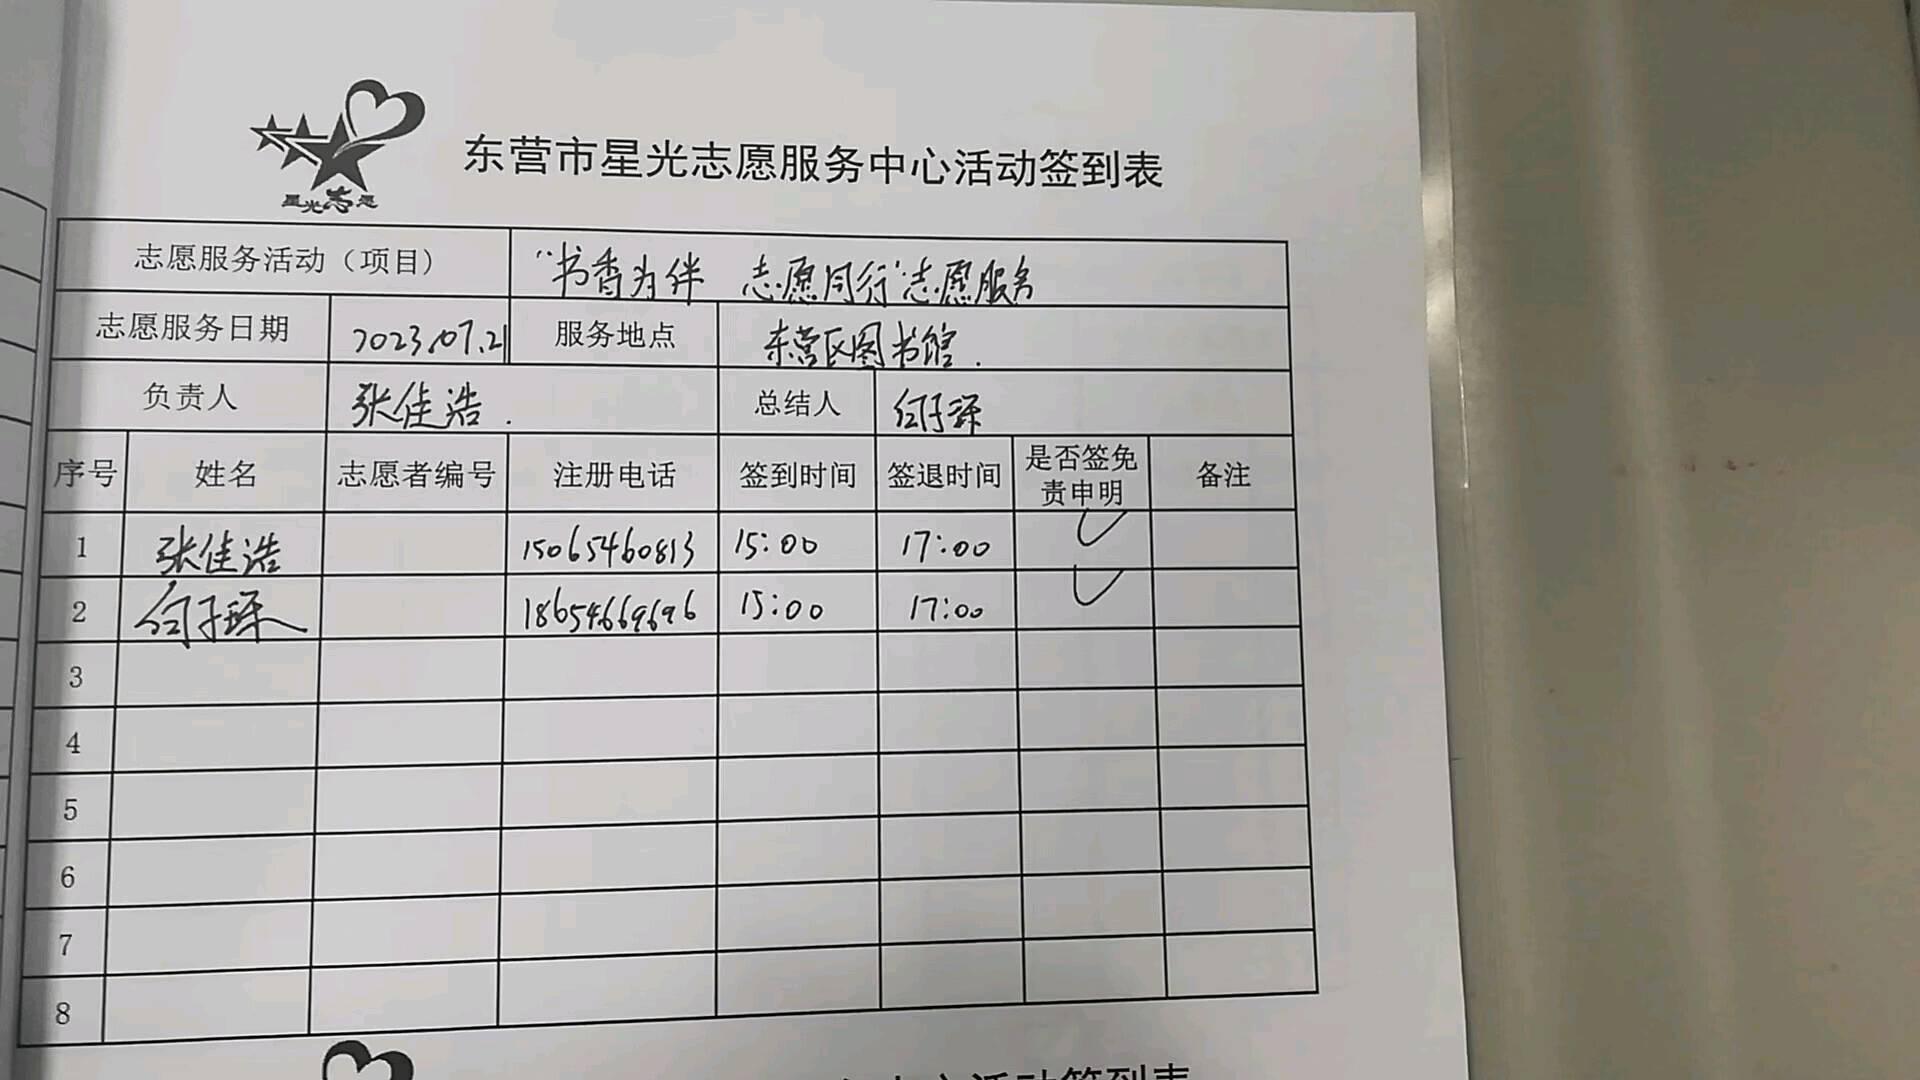 星光志愿
东营市星光志愿服务中心活动签到表
志愿服务活动（项目） “书香为伴 志愿同行”志愿服务
志愿服务日期 2023.07.21 服务地点 东营区图书馆.
负责人 张佳浩. 总结人
序号 姓名 志愿者编号 注册电话 签到时间 签退时间 是否签免责申明 备注
1 张佳浩 15065460813 15:00 17:00 ✓
2 18654669696 15:00 17:00 ✓
3
4
5
6
7
8
心活动签到表